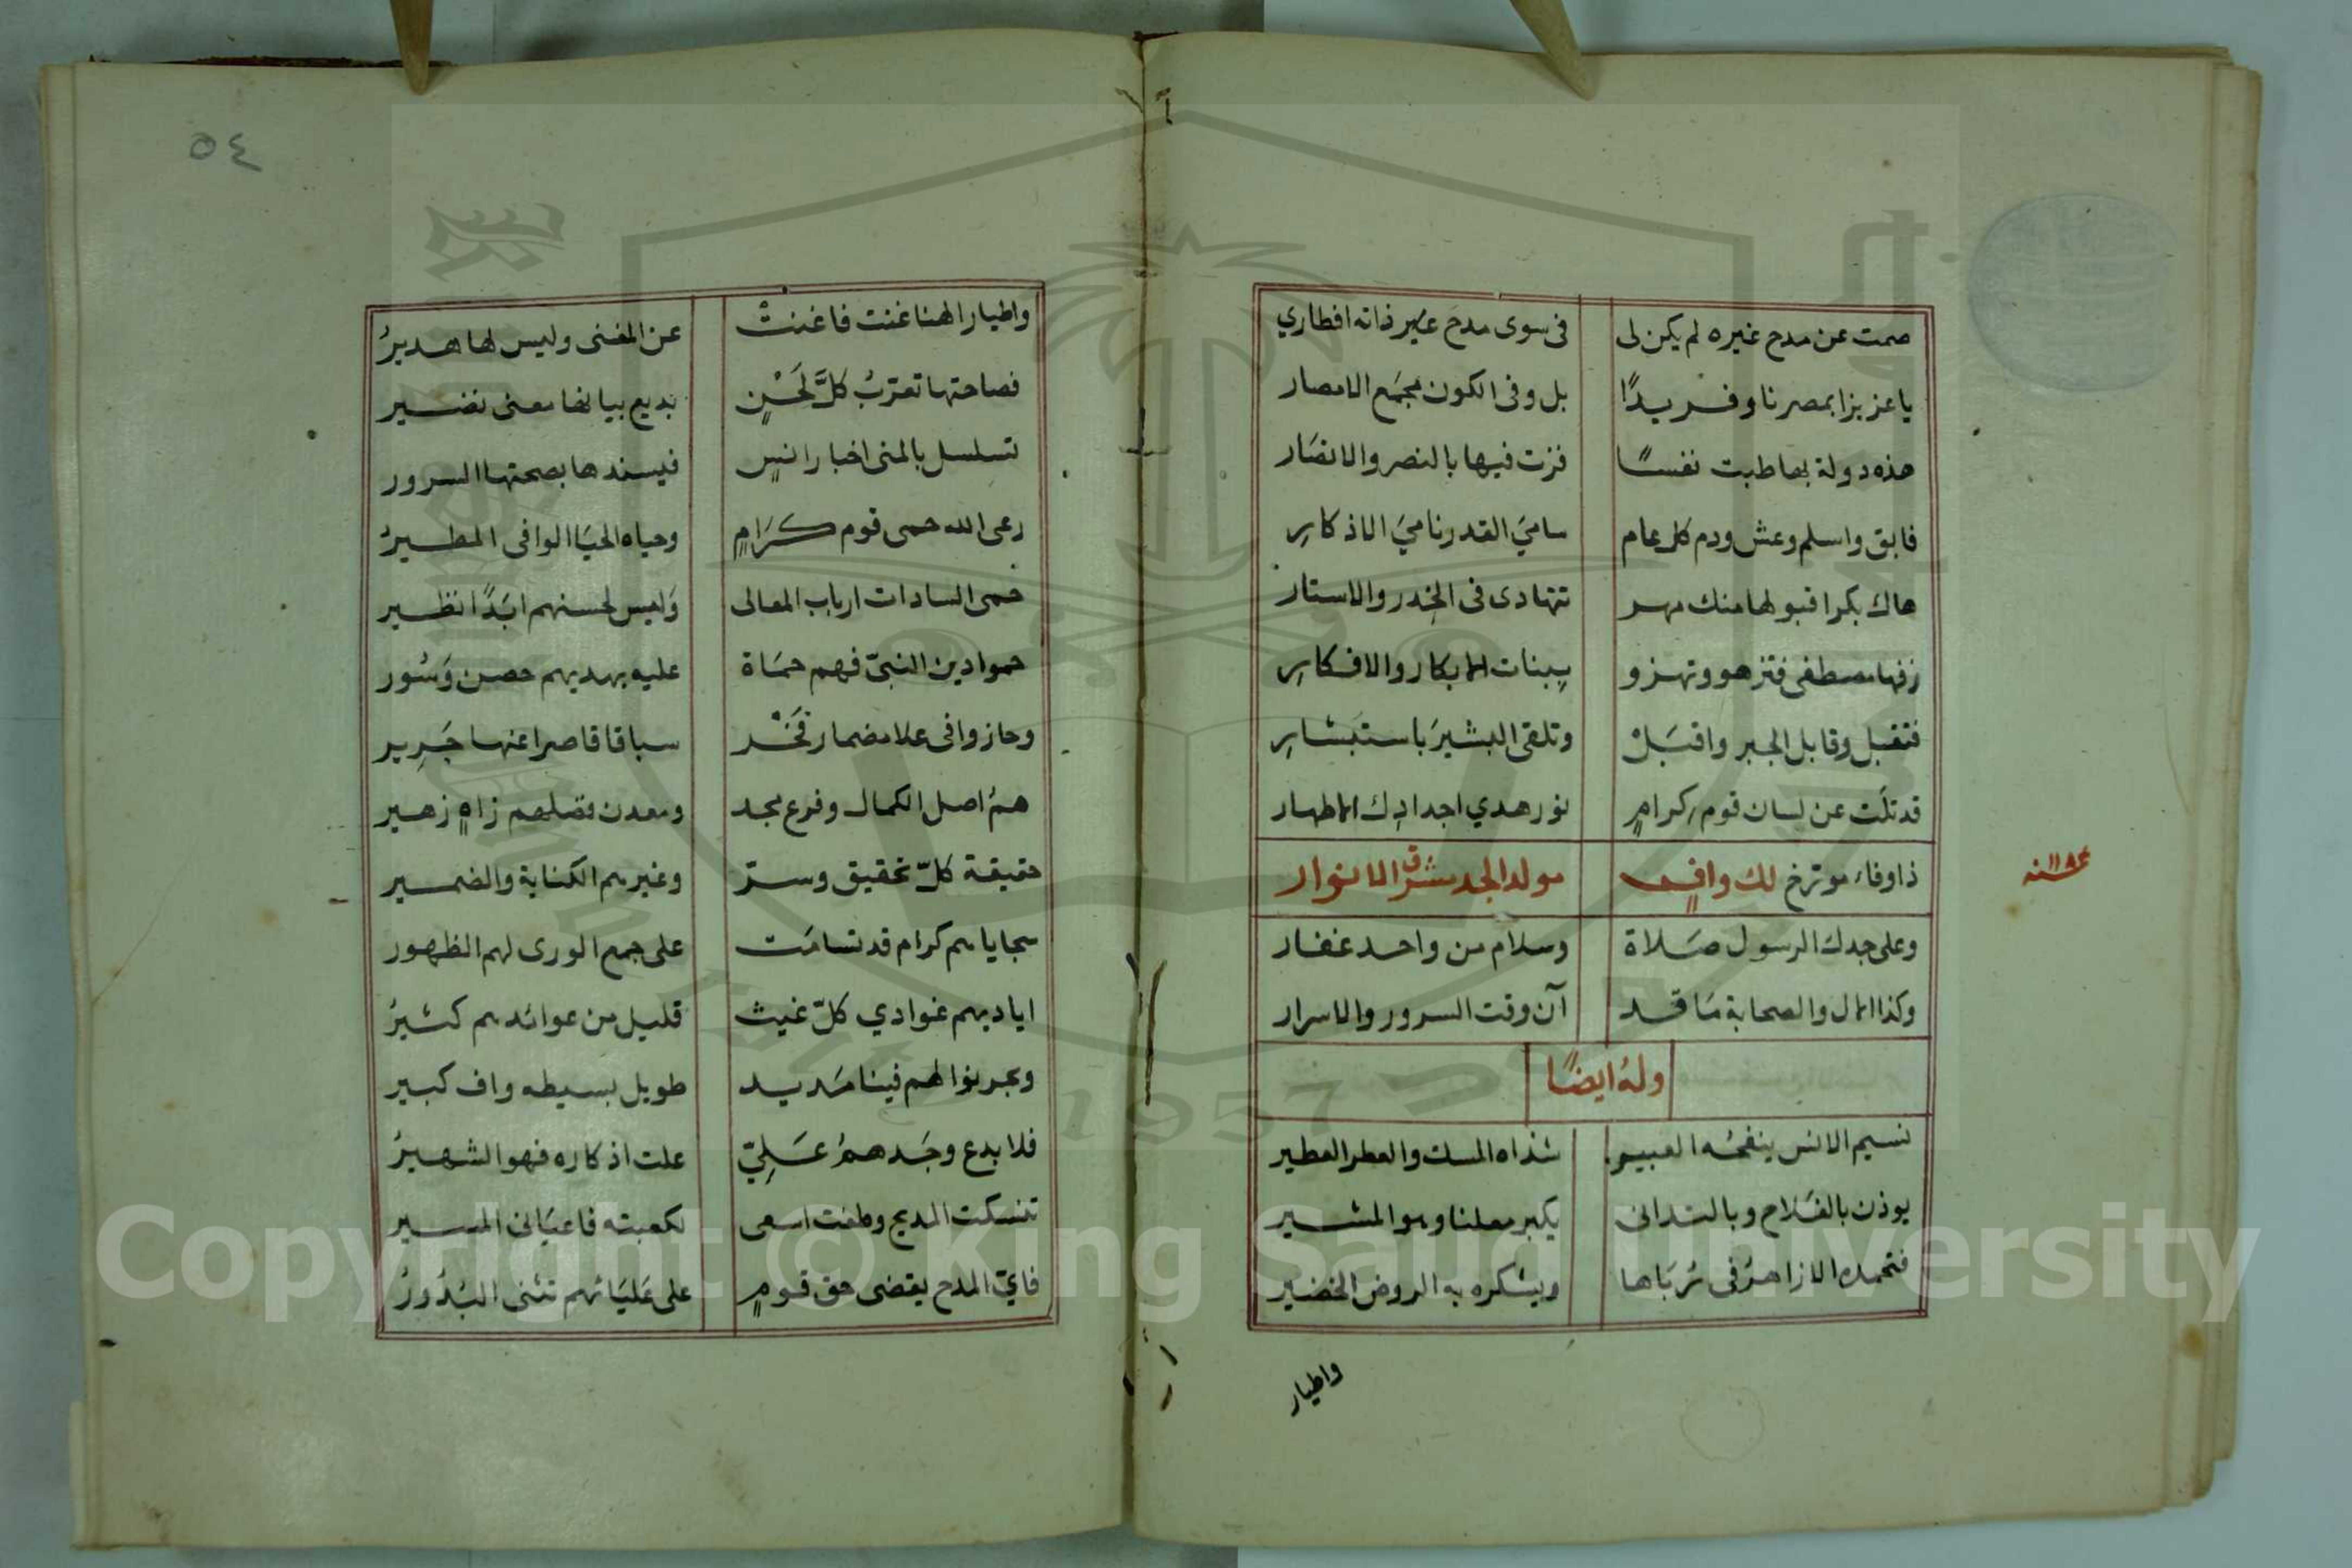 صمت عن مدح غيره لم يكن لى فى سوى مدح غير ذاته افطاري
يا عزيزا بمصرنا وفريدًا بل وفى الكون مجمَع الامصار
هذه دولة بها طبت نفسًا فزت فيها بالنصر والانصَار
فابق واسلم وعش ودم كل عام ساميَ القدر ناميَ الاذكارِ
هاك بكرا قبولها منك مهر تتهادى فى الخِدر والاستار
زفها مصطفى فتزهو وتهزو ببنات الابكار والافكارِ
فتقبل وقابل الجبر واقبَلْ وتلقى البشيرَ باستبشارِ
قد تلَت عن لسان قوم كرامٍ نور هدي اجدادِك الاطهار
ذا وفاء مؤرخ لك وافٍ مولد الجد مشرق الانوار
سنة
وعلى جدك الرسول صَلاة وسلام من واحد غفار
وكذا الال والصحابة مَا قد آن وقت السرور والاسرار
ولهُ ايضًا
نسيم الانس ينفحُه العبير شذاه المسك والعطر العطير
يوذن بالفَلاح وبالتدانى يكبر معلنا وهو المشير
فتحمده الازاهرُ فى رُبَاها ويشكره به الروض الخضير
واطيار
٥٤
واطيار الهنا غنت فاغنتْ عن المغنى وليس لها هديرُ
فصاحتها تعربُ كلَّ لَحْنٍ بديع بيانها معنى نضير
تسلسل بالمنى اخبار انسٍ فيسندها بصحتها السرور
رعى الله حمى قوم كرَامٍ وحياه الحيَا الوافى المطيرُ
حمى السادات ارباب المعالى وَليس لحسنهم ابَدًا نظير
حموا دين النبىّ فهم حمَاة عليه بهديهم حصن وَسُور
وحازوا فى علا مضمار فَخْر سباقا قاصرا عنها جَرِير
همُ اصل الكمال وفرع مجد ومعدن فضلهم زاهٍ زهير
حقيقة كلّ تحقيق وسرّ وغيرهم الكناية والضمير
سجاياهم كرام قد تسامَت على جمع الورى لهم الظهور
اياديهم غوادي كلّ غيث قليل من عوائدهم كثيرُ
وبحر نوالهم فينا مَديد طويل بسيطه واف كبير
فلا بدع وجَدهمُ عَلِيّ علت اذكاره فهو الشهيرُ
تنسكت المديح وطفت اسعى لكعبته فاعيَانى المسير
فايّ المدح يقضى حق قومٍ على عَليَائهم تثنى البُدُورُ
Copyright © King Saud University
1957